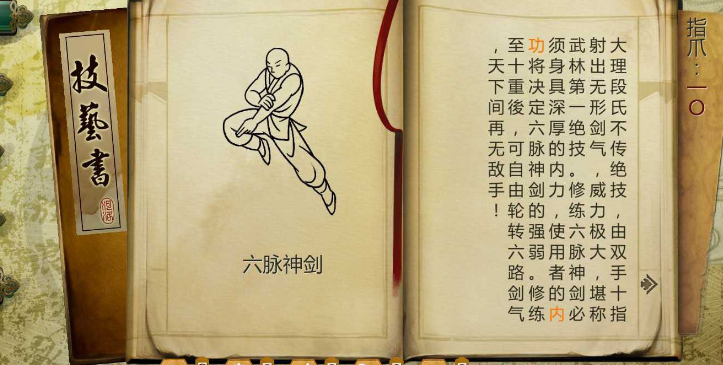 技藝書
六脉神剑
指爪：一〇
大理段氏不传绝技，由双手十指
射出无形剑气，威力极大，堪称
武林第一绝技。修练六脉神剑必
须身具深厚的内力，使用者的内
功将决定六脉神剑的强弱。修练
至十重後，可自由轮转六路剑气
，天下间再无敌手！